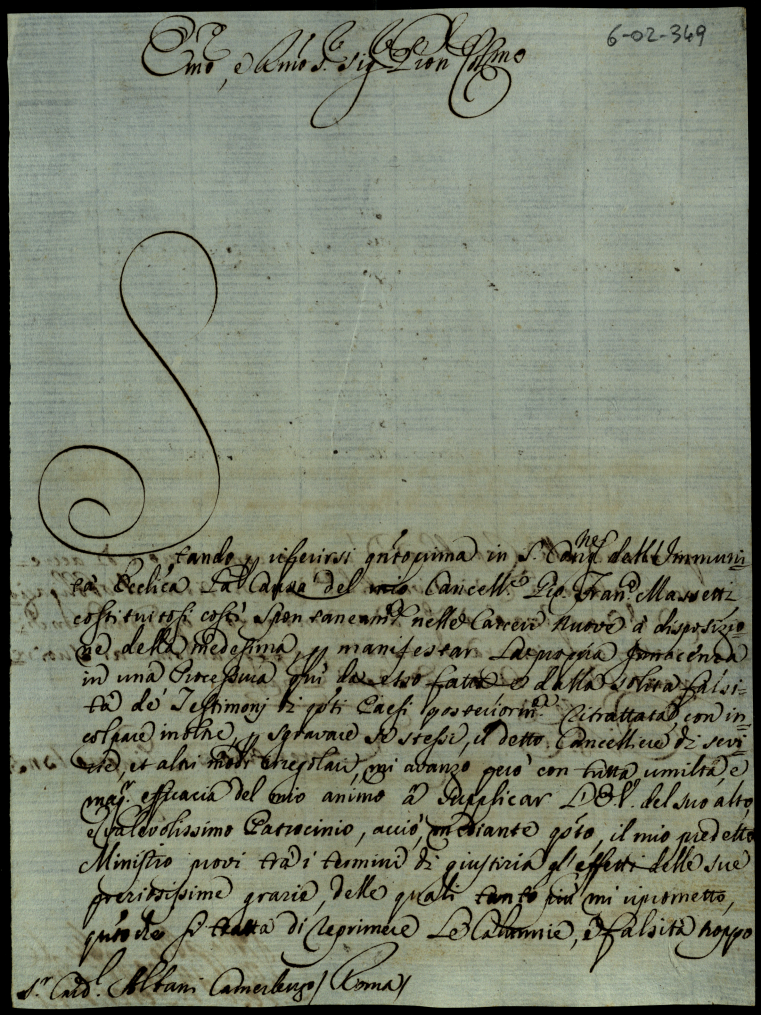 6-02-349
Emo, e Rmo Sr. Sig. Pron Colmo
Stando p riferirsi qntoprima in S. Congne dell'Immuni=
tà Ecclica La Causa del mio Cancell.e Pip. Fran.o Massetti
costituitosi costì spontaneamte nelle Carceri nuove à disposizio=
ne della medesima, p manifestar La propria Innocenza
in una Processura quì da esso fatta e dalla solita falsi=
tà de' Testimonj di qsti Paesi posteriormte ritrattata con in=
colpare inoltre, p sgravare se stessi, il detto Cancelliere di sevi=
zie, et altri modi irregolari, mi avanzo però con tutta umiltà, e
magr. efficacia del mio animo à supplicar L'E.V. del suo alto,
e valevolissimo Patrocinio, acciò, mediante qsto, il mio predetto
Ministro provi trà i termini di giustizia gl'effetti delle sue
preziosissime grazie, delle quali tanto più mi riprometto,
qnto che si tratta di reprimere Le Calunnie, e falsità troppo
Sr. Card. Albani Camerlengo / Roma /